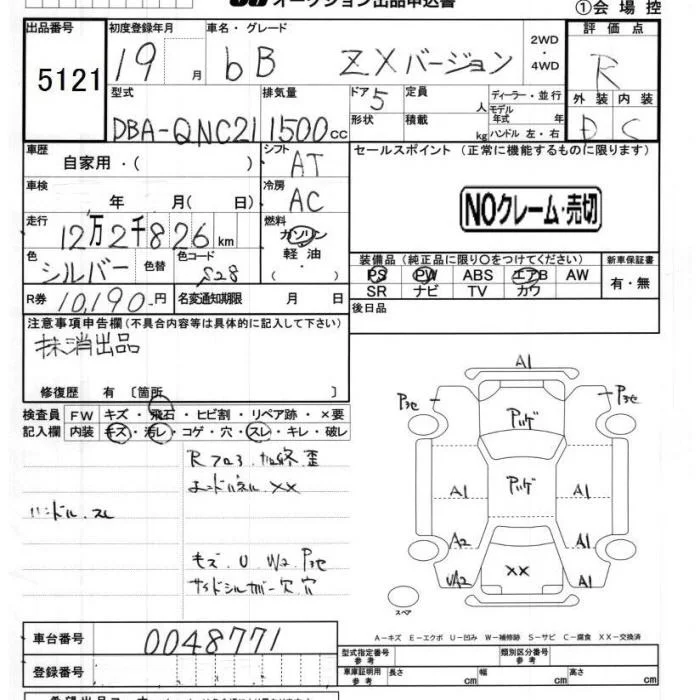 オークション出品申込書
①会場控
出品番号 初度登録年月 車名・グレード 2WD・4WD 評価点
5121 19 月 bB ZXバージョン R
型式 排気量 ドア 5 定員 人 ディーラー・並行 外装 内装
DBA-QNC21 1500cc 形状 積載 kg モデル年式 年 ハンドル 左・右 D C
車歴 自家用・( ) シフト AT セールスポイント (正常に機能するものに限ります)
車検 年 月( 日) 冷房 AC NOクレーム・売切
走行 12万2千826km 燃料 ガソリン
軽油
( ・ )
色 シルバー 色替 色コード S28
装備品 (純正品に限り○をつけてください) 新車保証書
PS PW ABS エアB AW 有・無
SR ナビ TV カワ
R券 10,190円 名変通知期限 月 日
後日品
注意事項申告欄(不具合内容等は具体的に記入して下さい)
抹消出品
修復歴 有 〔箇所 〕
検査員 FW キズ・飛石・ヒビ割・リペア跡・×要
記入欄 内装 キズ・汚レ・コゲ・穴・スレ・キレ・破レ
Rフロア
エンドパネル XX
ハンドル スレ
キズ U W2
サイドシル
A1
A1 A1
A2 A1
UA2 XX A1
スペア
A-キズ E-エクボ U-凹み W-補修跡 S-サビ C-腐食 XX-交換済
車台番号 0048771
登録番号
型式指定番号 参考 類別区分番号 参考
車庫証明用 参考 長さ cm 幅 cm 高さ cm